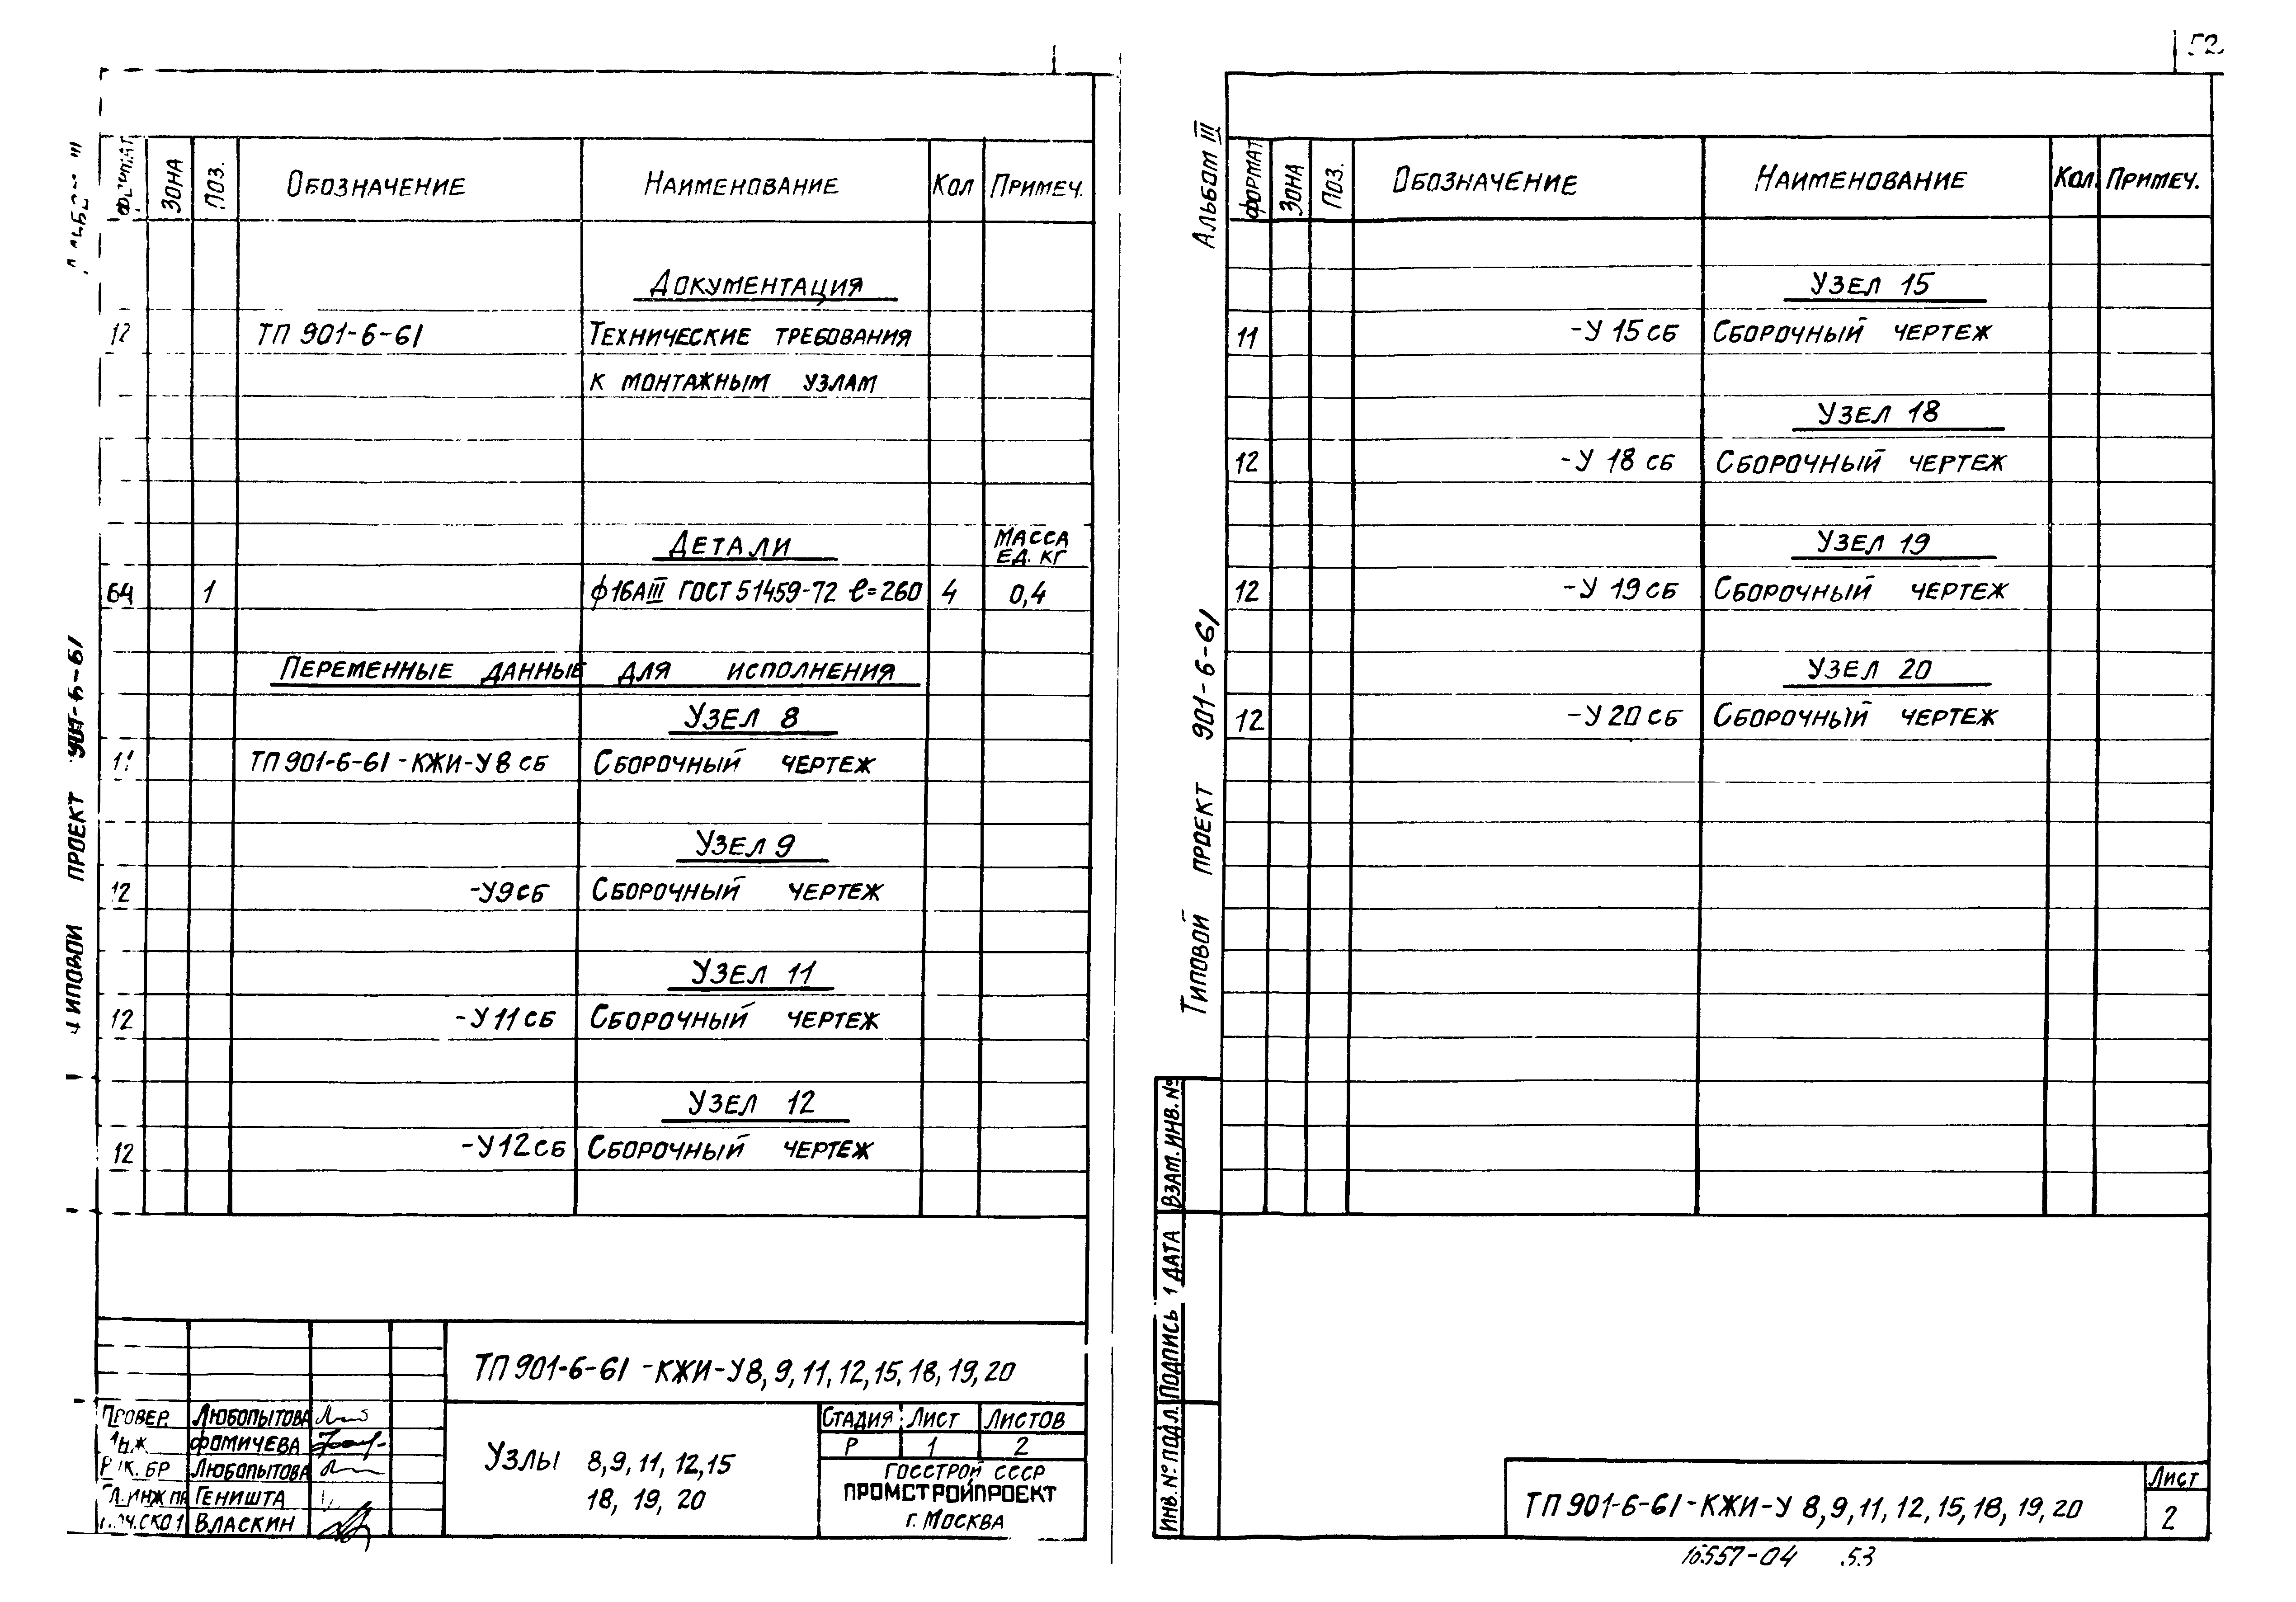 52
Альбом III
Типовой проект 901-6-61
Зона Поз. Обозначение Наименование Кол Примеч.
Документация
12 ТП 901-6-61 Технические требования
к монтажным узлам
Детали Масса ед. кг
64 1 ф16АIII ГОСТ 51459-72 ℓ=260 4 0,4
Переменные данные для исполнения
Узел 8
11 ТП 901-6-61-КЖИ-У8 сб Сборочный чертеж
Узел 9
12 -У9 сб Сборочный чертеж
Узел 11
12 -У11 сб Сборочный чертеж
Узел 12
12 -У12 сб Сборочный чертеж
ТП 901-6-61-КЖИ-У8, 9, 11, 12, 15, 18, 19, 20
Провер. Любопытова
Инж Фомичева
Рук. бр Любопытова
Гл. инж пр Геништа
Власкин
Узлы 8, 9, 11, 12, 15
18, 19, 20
Стадия Лист Листов
Р 1 2
Госстрой СССР
ПРОМСТРОЙПРОЕКТ
г. Москва
Альбом III
Типовой проект 901-6-61
Формат Зона Поз. Обозначение Наименование Кол. Примеч.
Узел 15
11 -У 15 сб Сборочный чертеж
Узел 18
12 -У 18 сб Сборочный чертеж
Узел 19
12 -У 19 сб Сборочный чертеж
Узел 20
12 -У 20 сб Сборочный чертеж
Взам. инв. №
Подпись дата
Инв. № подл.
ТП 901-6-61-КЖИ-У 8, 9, 11, 12, 15, 18, 19, 20
Лист
2
16557-04 53